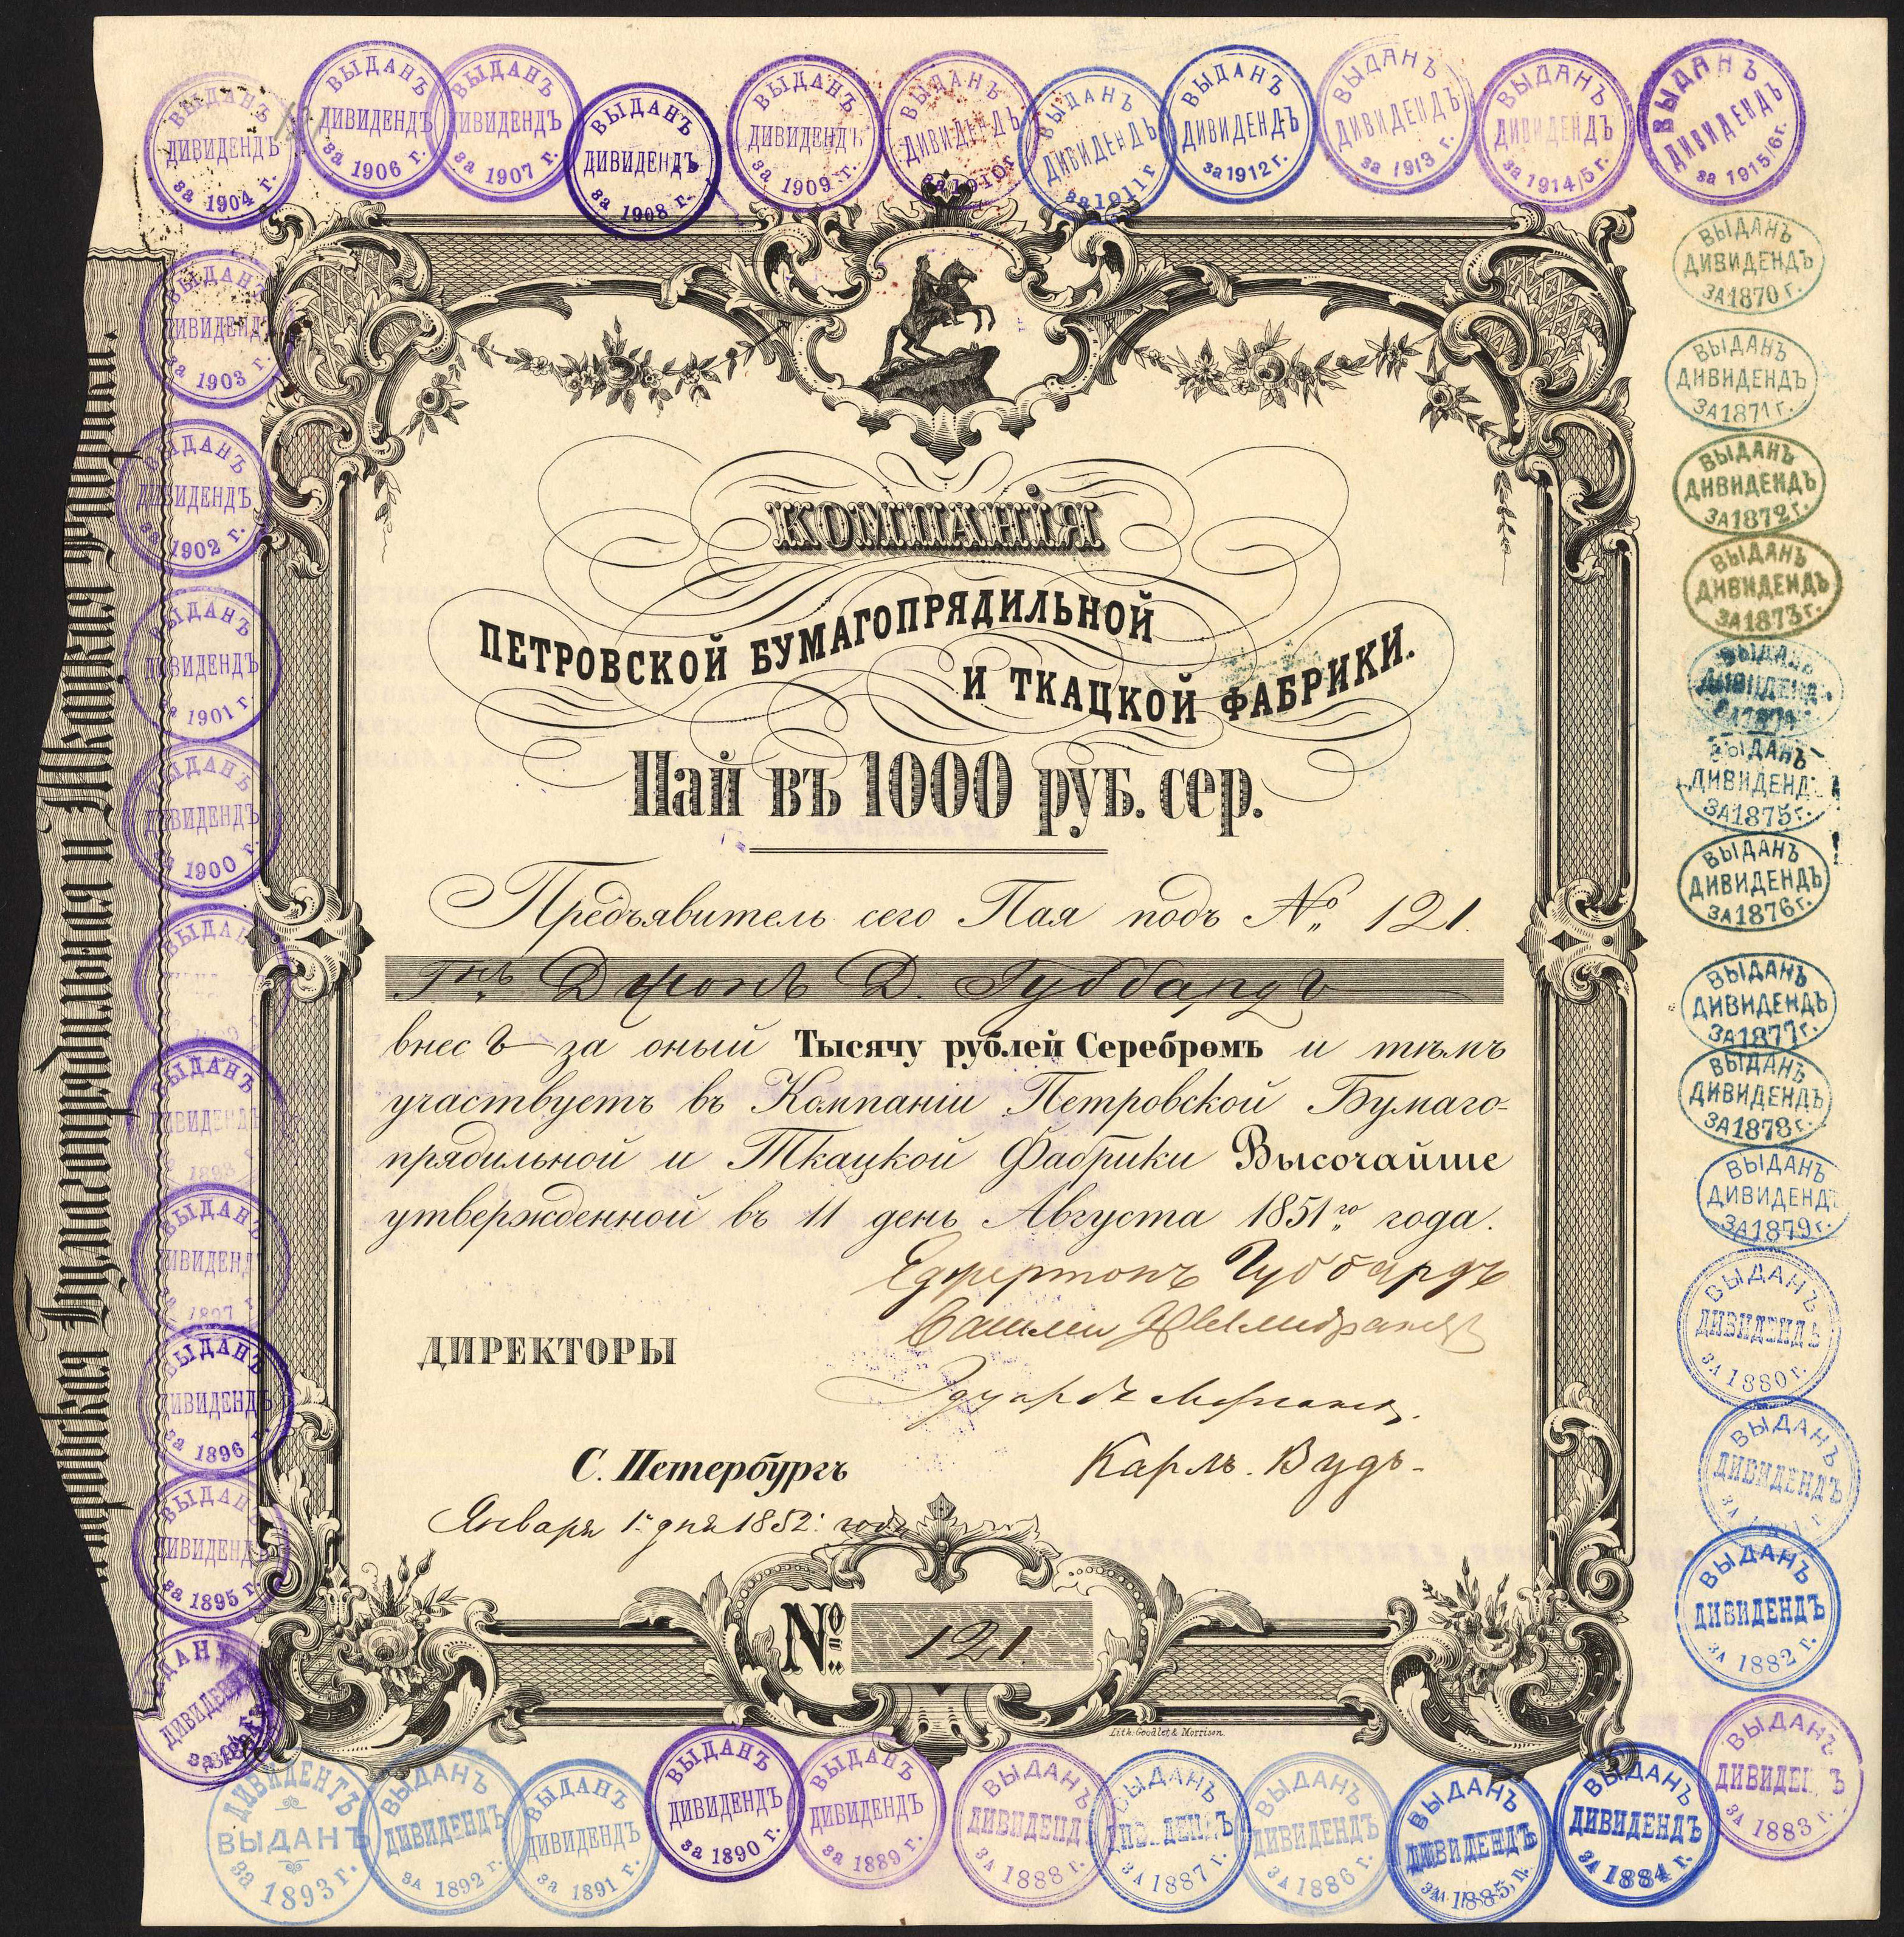 ВЫДАНЪ
ДИВИДЕНДЪ
за 1904 г.
ВЫДАНЪ
ДИВИДЕНДЪ
за 1906 г.
ВЫДАНЪ
ДИВИДЕНДЪ
за 1907 г.
ВЫДАНЪ
ДИВИДЕНДЪ
за 1908 г.
ВЫДАНЪ
ДИВИДЕНДЪ
за 1909 г.
ВЫДАНЪ
ДИВИДЕНДЪ
за 1910 г
ВЫДАНЪ
ДИВИДЕНДЪ
за 1911 г
ВЫДАНЪ
ДИВИДЕНДЪ
за 1912 г.
ВЫДАНЪ
ДИВИДЕНДЪ
за 1913 г.
ВЫДАНЪ
ДИВИДЕНДЪ
за 1914/5 г.
ВЫДАНЪ
ДИВИДЕНДЪ
за 1915/6 г.
ВЫДАНЪ
ДИВИДЕНДЪ
ЗА 1870 г.
ВЫДАНЪ
ДИВИДЕНДЪ
ЗА 1871 г.
ВЫДАНЪ
ДИВИДЕНДЪ
ЗА 1872 г.
ВЫДАНЪ
ДИВИДЕНДЪ
ЗА 1873 г.
ВЫДАНЪ
ДИВИДЕНДЪ
ВЫДАНЪ
ДИВИДЕНДЪ
ЗА 1875 г.
ВЫДАНЪ
ДИВИДЕНДЪ
ЗА 1876 г.
ВЫДАНЪ
ДИВИДЕНДЪ
ЗА 1877 г.
ВЫДАНЪ
ДИВИДЕНДЪ
ЗА 1878 г.
ВЫДАНЪ
ДИВИДЕНДЪ
ЗА 1879 г.
ВЫДАНЪ
ДИВИДЕНДЪ
ЗА 1880 г.
ВЫДАНЪ
ДИВИДЕНДЪ
ВЫДАНЪ
ДИВИДЕНДЪ
ЗА 1882 г.
ВЫДАНЪ
ДИВИДЕНДЪ
ЗА 1883 г.
ВЫДАНЪ
ДИВИДЕНДЪ
ЗА 1884 г.
ВЫДАНЪ
ДИВИДЕНДЪ
ЗА 1885 г.
ВЫДАНЪ
ДИВИДЕНДЪ
ЗА 1886 г.
ВЫДАНЪ
ДИВИДЕНДЪ
ЗА 1887 г.
ВЫДАНЪ
ДИВИДЕНДЪ
ЗА 1888 г.
ВЫДАНЪ
ДИВИДЕНДЪ
за 1889 г.
ВЫДАНЪ
ДИВИДЕНДЪ
за 1890 г.
ВЫДАНЪ
ДИВИДЕНДЪ
за 1891 г.
ВЫДАНЪ
ДИВИДЕНДЪ
ЗА 1892 г.
ДИВИДЕНТЪ
ВЫДАНЪ
за 1893 г.
ВЫДАНЪ
ДИВИДЕНДЪ
ВЫДАНЪ
ДИВИДЕНДЪ
за 1895 г.
ВЫДАНЪ
ДИВИДЕНДЪ
за 1896 г.
ВЫДАНЪ
ДИВИДЕНДЪ
за 1897
ВЫДАНЪ
ДИВИДЕНДЪ
ВЫДАНЪ
ВЫДАНЪ
ДИВИДЕНДЪ
за 1900 г.
ВЫДАНЪ
ДИВИДЕНДЪ
за 1901 г
ВЫДАНЪ
ДИВИДЕНДЪ
за 1902 г.
ВЫДАНЪ
ДИВИДЕНДЪ
за 1903 г.
Петровская Бумагопрядильная и Ткацкая Фабрики.
КОМПАНІЯ
ПЕТРОВСКОЙ БУМАГОПРЯДИЛЬНОЙ
И ТКАЦКОЙ ФАБРИКИ.
Пай въ 1000 руб. сер.
Предъявитель сего Пая подъ № 121.
Гнъ Джонъ Д. Губбардъ
внесъ за оный Тысячу рублей Серебромъ и тѣмъ
участвуетъ въ Компаніи Петровской Бумаго-
прядильной и Ткацкой Фабрики Высочайше
утвержденной въ 11 день Августа 1851го года.
Егертонъ Губбардъ
ДИРЕКТОРЫ
Эдуардъ Морганъ.
С. Петербургъ
Карлъ Вудъ.
Января 1. дня 1852. года
№ 121.
Lith: Goodlet & Morrison.